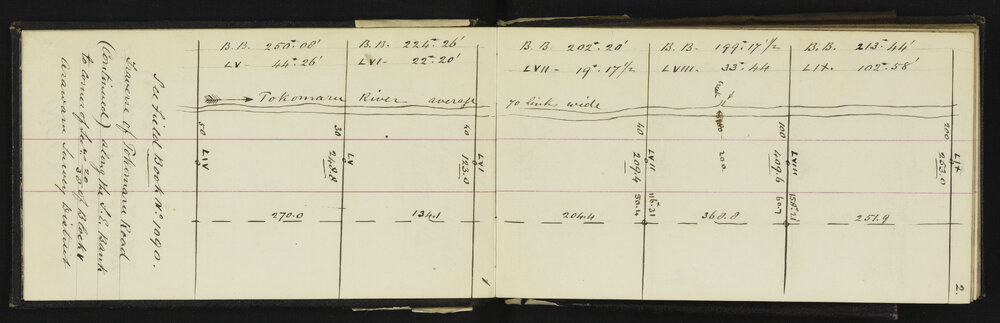 See Field Book No. 1090.
Traverse of Tokomaru Road
(Continued) along the S.E. Bank
to corner of Block
Arawaru Survey District
B.B. 250°.08' B.B. 224°.26' B.B. 202°.20' B.B. 199°.17 1/2 B.B. 213°.44'
LV - 44°.26' LVI - 22°.20' LVII - 19°.17 1/2 LVIII. 33°.44 LIX. 102°.58'
Tokomaru River average 70 links wide
50 30 40 40 100 200
LIV LV LVI LVII LVIII LIX
248.8 123.0 209.4 409.6 253.0
200
116°.31
50.4
158°.21
607
270.0 134.1 204.4 368.8 251.9
1
2.